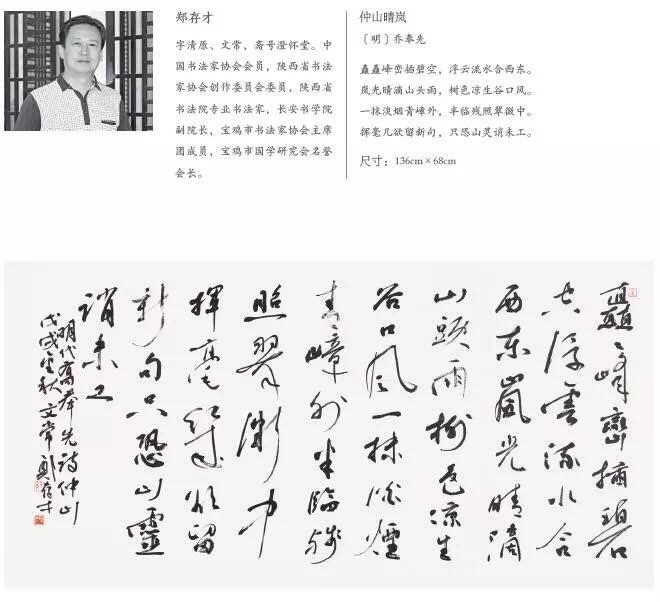 郑存才
字清原、文常，斋号澄怀堂。中
国书法家协会会员，陕西省书法
家协会创作委员会委员，陕西省
书法院专业书法家，长安书学院
副院长，宝鸡市书法家协会主席
团成员，宝鸡市国学研究会名誉
会长。
仲山晴岚
〔明〕乔奉先
矗矗峰峦插碧空，浮云流水合西东。
岚光晴滴山头雨，树色凉生谷口风。
一抹淡烟青嶂外，半临残照翠微中。
挥毫几欲留新句，只恐山灵诮未工。
尺寸：136cm×68cm
矗〻峰巒插碧
空浮雲流水合
西东嵐光晴滴
山頭雨樹色凉生
谷口风一抹淡煙
青嶂外半臨残
照翠微中
揮毫幾欲留
新句只恐山靈
誚未工
明代喬奉先詩仲山
戊戌秋文常鄭存才